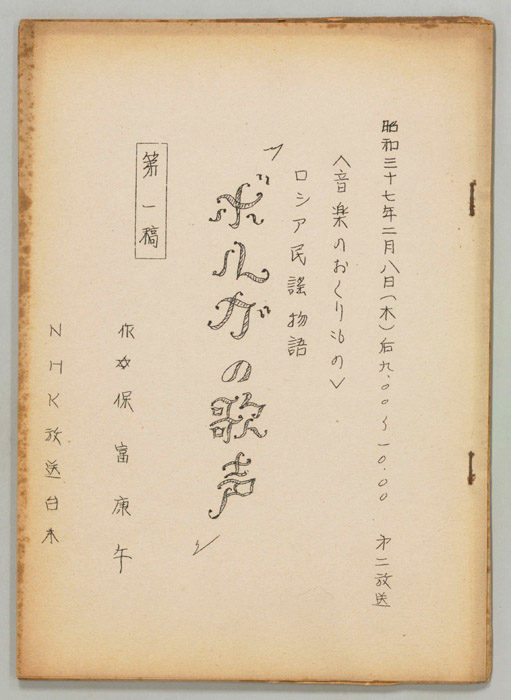 昭和三十七年二月八日(木)后九.〇〇〜一〇.〇〇 第二放送
〈音楽のおくりもの〉
ロシア民謡物語
「ボルガの歌声」
第一稿
作✡保富康午
NHK放送台本